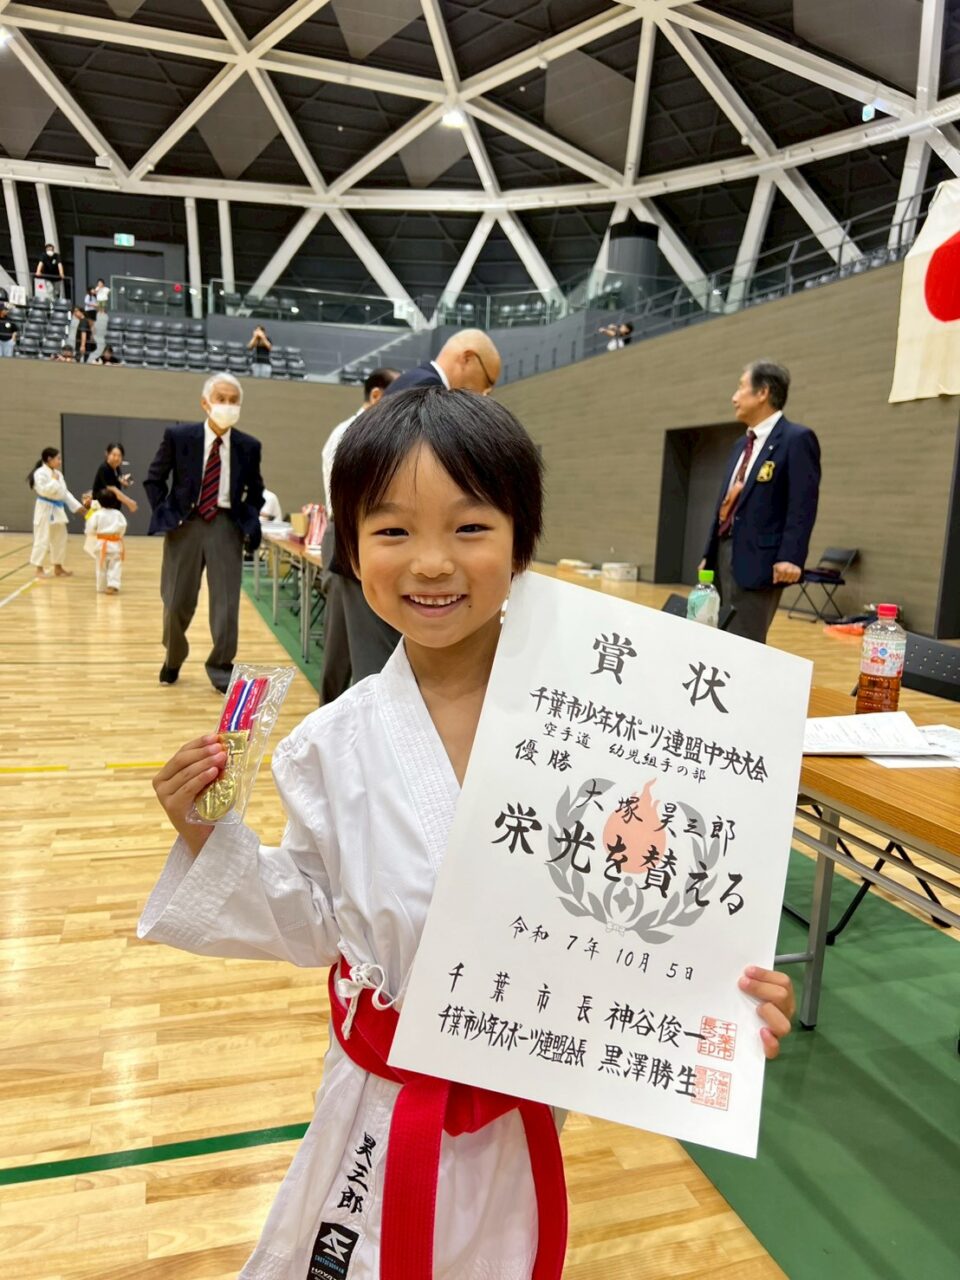 賞状
千葉市少年スポーツ連盟中央大会
空手道 幼児組手の部
優勝
大塚昊三郎
栄光を賛える
令和7年10月5日
千葉市長 神谷俊一
千葉市少年スポーツ連盟会長 黒澤勝生
昊三郎